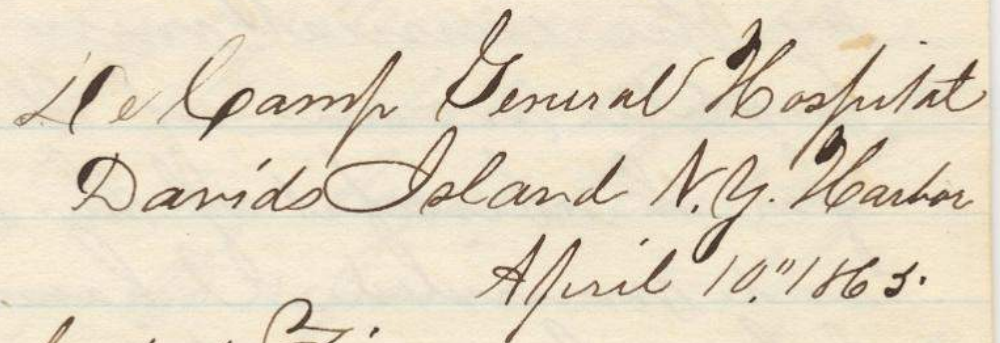 De Camp General Hospital
Davids Island N.Y. Harbor
April 10," 1865.